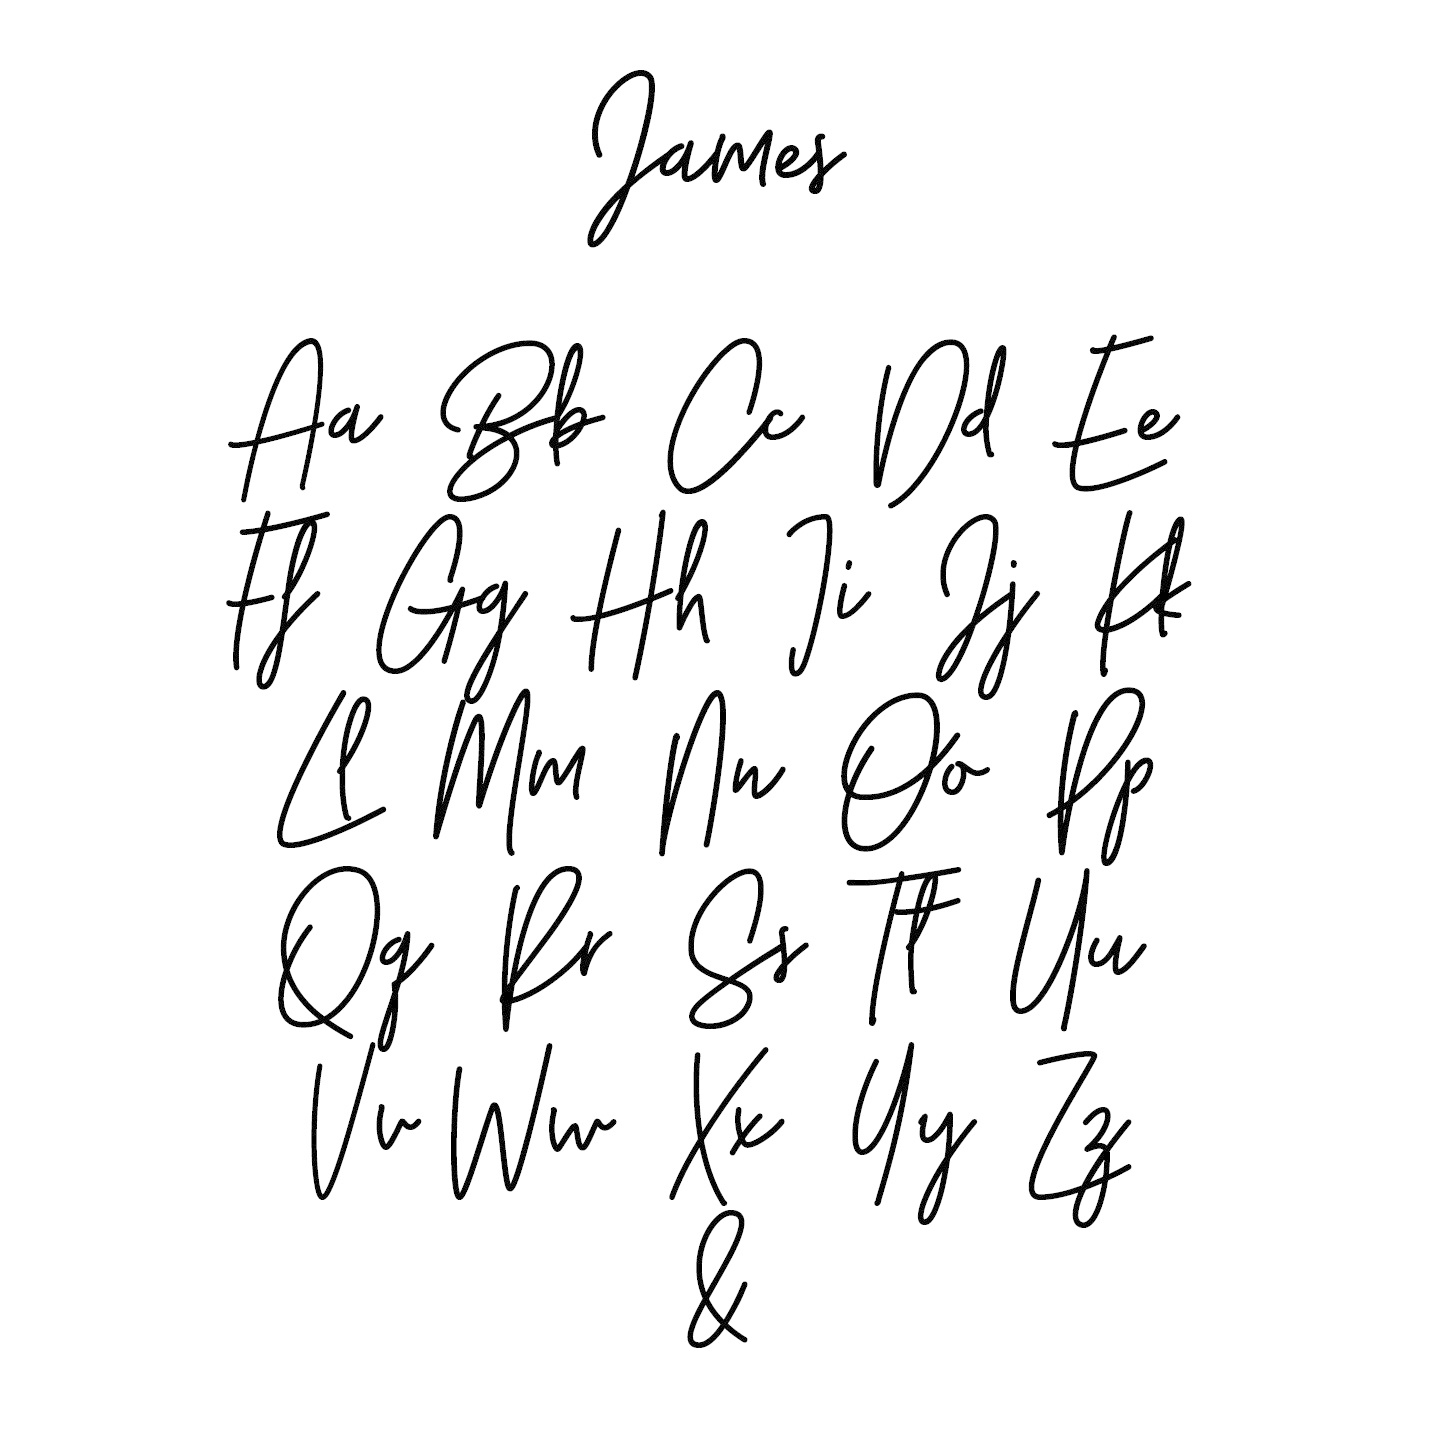 James
Aa Bb Cc Dd Ee
Ff Gg Hh Ii Jj Kk
Ll Mm Nn Oo Pp
Qq Rr Ss Tt Uu
Vv Ww Xx Yy Zz
&